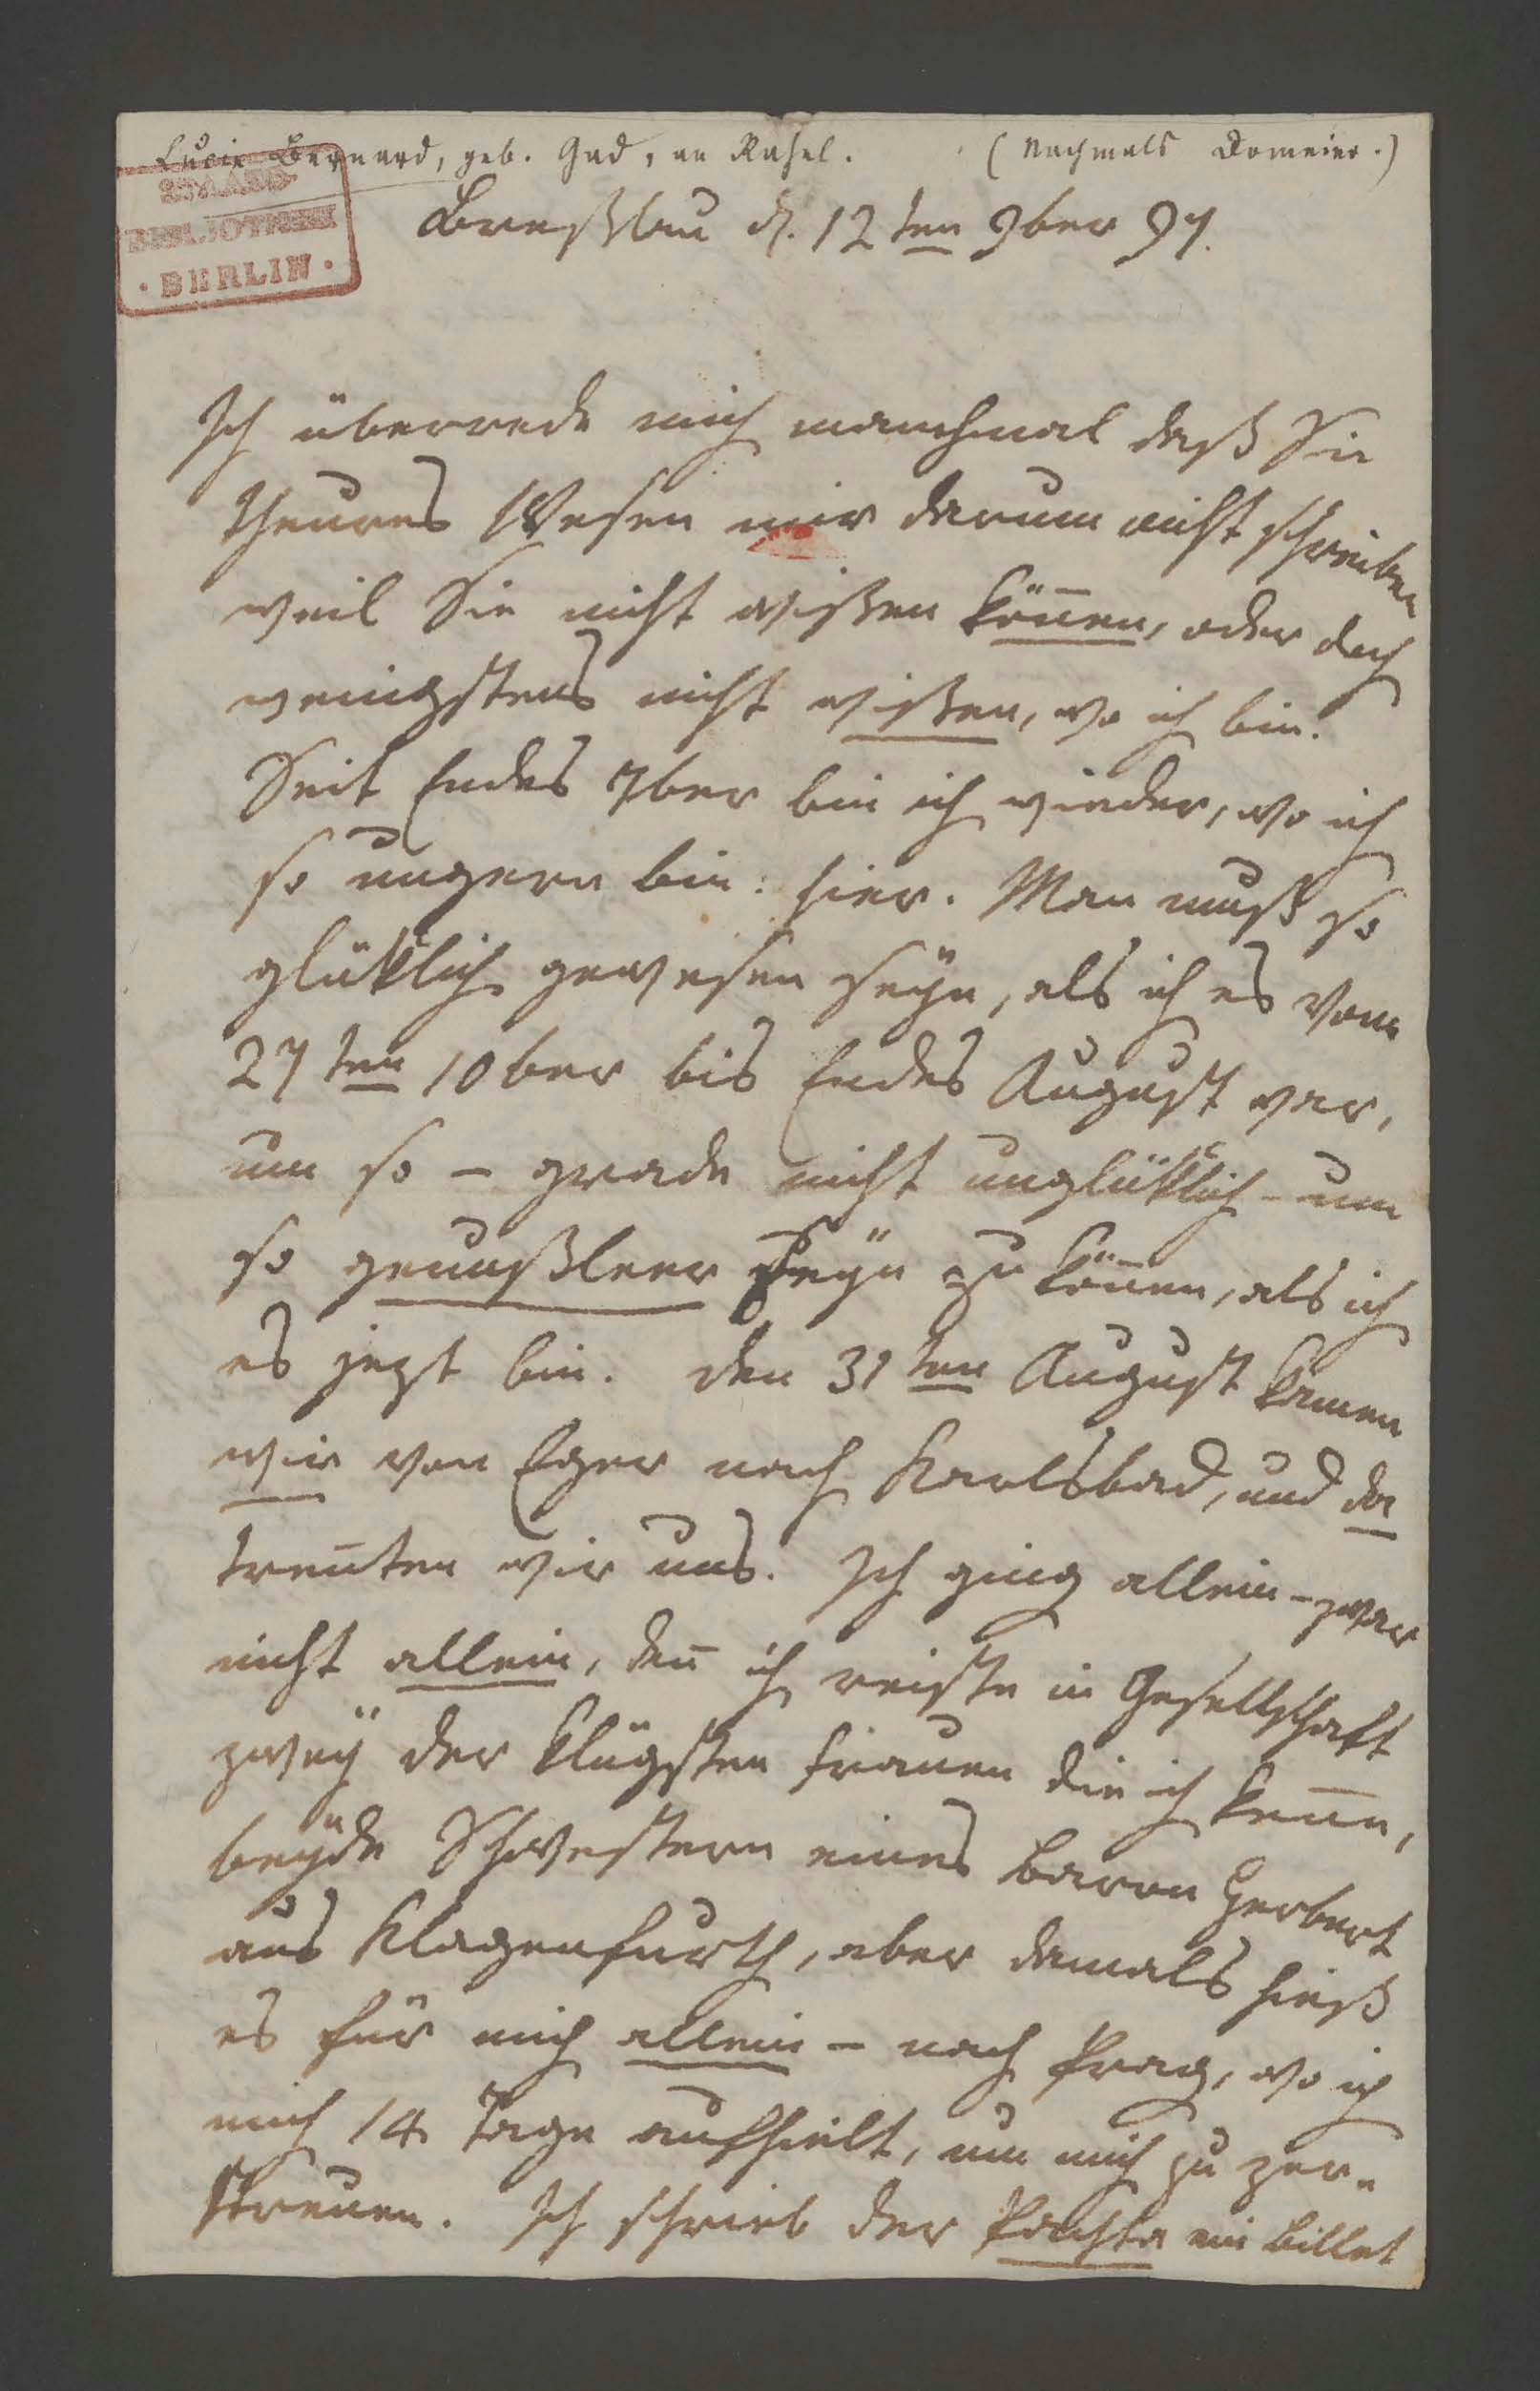 Lucie Bernard, geb. Gad, an Rahel. (Nachmals Domeier.)
STAATS-
BIBLIOTHEK
· BERLIN ·
Breßlau d. 12ten 9ber 97.
Ich überrede mich manchmal daß Sie
theures Wesen mir darum nicht schreiben
weil Sie nicht wißen köñen, oder doch
wenigstens nicht wißen, wo ich bin.
Seit Endes 7ber bin ich wieder, wo ich
so ungern bin: hier. Man muß so
glüklich gewesen seÿn, als ich es vom
27ten 10ber bis Endes August war,
um so – grade nicht unglüklich – um
so genußleer seÿn zu köñen, als ich
es jezt bin. Den 31ten August kamen
wir von Eger nach Karlsbad, und da
treñten wir uns. Ich ging allein – zwar
nicht allein, deñ ich reiste in Gesellschaft
zweÿ der klügsten Frauen die ich keñe,
beÿde Schwestern eines Baron Herbert
aus Klagenfurth, aber damals hieß
es für mich allein – nach Prag, wo ich
mich 14 Tage aufhielt, um mich zu zer-
streuen. Ich schrieb der Pachta ein Billet